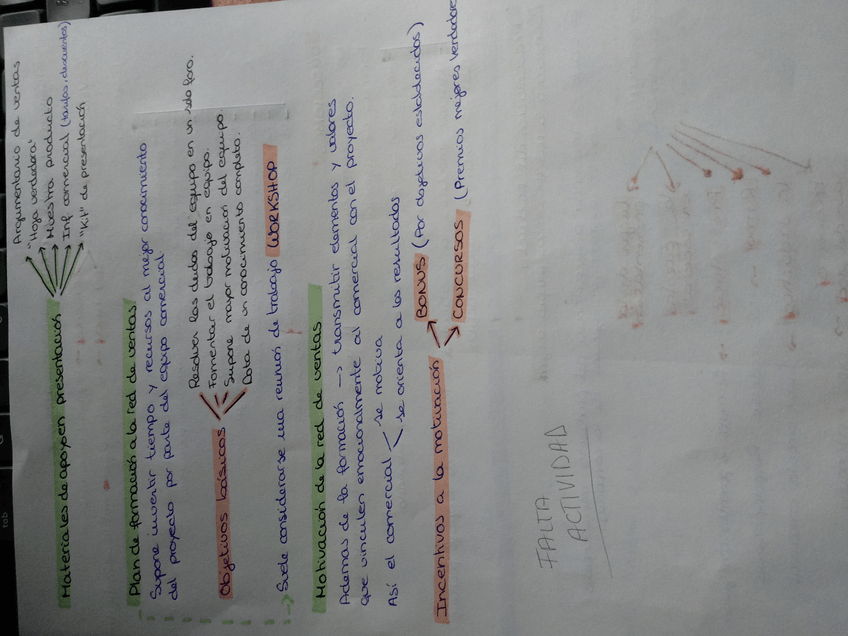 Materiales de apoyo en presentación
Argumentario de ventas
"Hoja vendedora"
Muestra producto
Inf. comercial (tarifas, descuentos)
"Kit" de presentación
Plan de formación a la red de ventas
Supone invertir tiempo y recursos al mejor conocimiento
del proyecto por parte del equipo comercial
Objetivos básicos
Resolver las dudas del equipo en un solo foro.
Fomentar el trabajo en equipo.
Supone mayor motivación del equipo.
Dota de un conocimiento completo.
Suele considerarse una reunión de trabajo WORKSHOP
Motivación de la red de ventas
Ademas de la formación → transmitir elementos y valores
que vinculen emocionalmente al comercial con el proyecto.
Así el comercial < se motiva
se orienta a los resultados
Incentivos a la motivación
BONUS (Por objetivos establecidos)
CONCURSOS (Premios mejores vendedores
FALTA
ACTIVIDAD